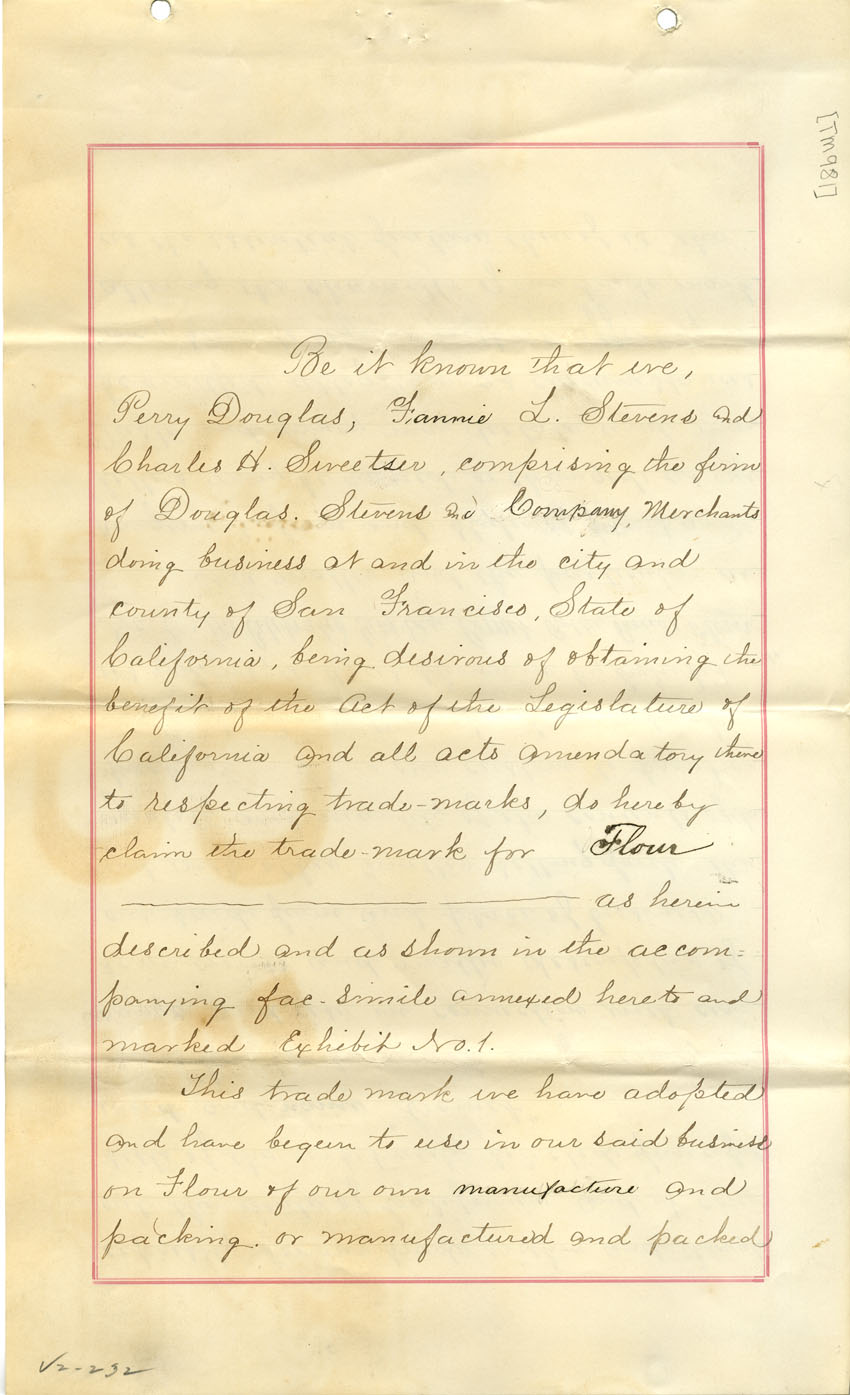 [TM981]
Be it known that we,
Perry Douglas, Fannie L. Stevens and
Charles H. Sweetser, comprising the firm
of Douglas. Stevens and Company, Merchants
doing business at and in the city and
county of San Francisco, State of
California, being desirous of obtaining the
benefit of the Act of the Legislature of
California and all acts amendatory there
to respecting trade-marks, do hereby
claim the trade-mark for Flour
as herein
described and as shown in the accom=
panying fac-simile annexed hereto and
marked Exhibit No. 1.
This trade mark we have adopted
and have begun to use in our said business
on Flour of our own manufacture and
packing. or manufactured and packed
V2-232